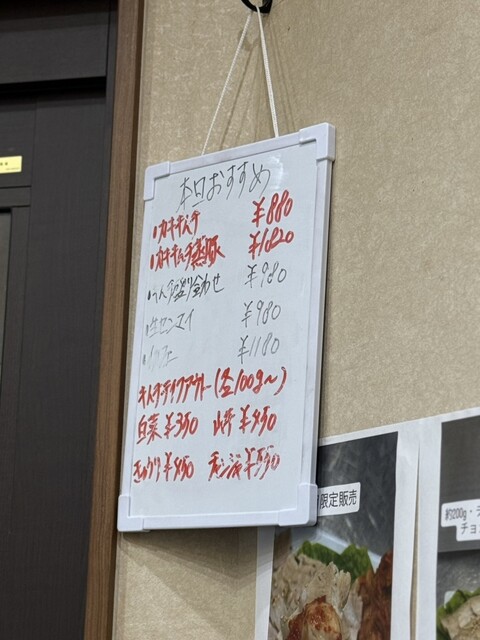 本日おすすめ
カキキムチ ¥880
カキキムチ蒸豚 ¥1620
盛り合わせ ¥980
生センマイ ¥980
¥1180
キムチテイクアウト(各100g〜)
白菜 ¥350 山芋 ¥450
きゅうり ¥450 チャンジャ ¥550
限定販売
約200g・
チョ